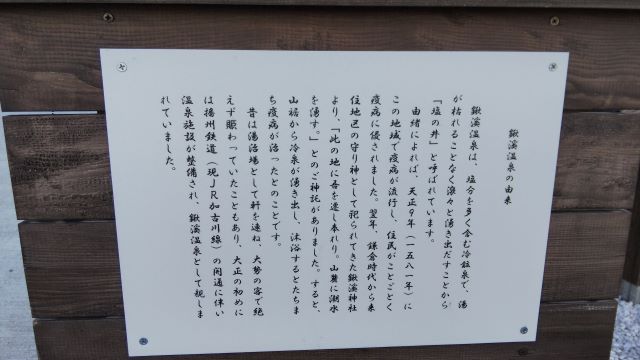 鍬溪温泉の由来
鍬溪温泉は、塩分を多く含む冷鉱泉で、湯
が枯れることなく滾々と湧き出だすことから
「塩の井」と呼ばれています。
由緒によれば、天正9年(一五八一年)に
この地域で疫病が流行し、住民がことごとく
疫病に侵されました。翌年、鎌倉時代から来
住地区の守り神として祀られてきた鍬溪神社
より、「此の地に吾を遷し奉れり。山麓に潮水
を湧す。」とのご神託がありました。すると、
山裾から冷泉が湧き出し、沐浴するとたちま
ち疫病が治ったとのことです。
昔は湯治場として軒を連ね、大勢の客で絶
えず賑わっていたこともあり、大正の初めに
は播州鉄道(現JR加古川線)の開通に伴い
温泉施設が整備され、鍬溪温泉として親しま
れていました。